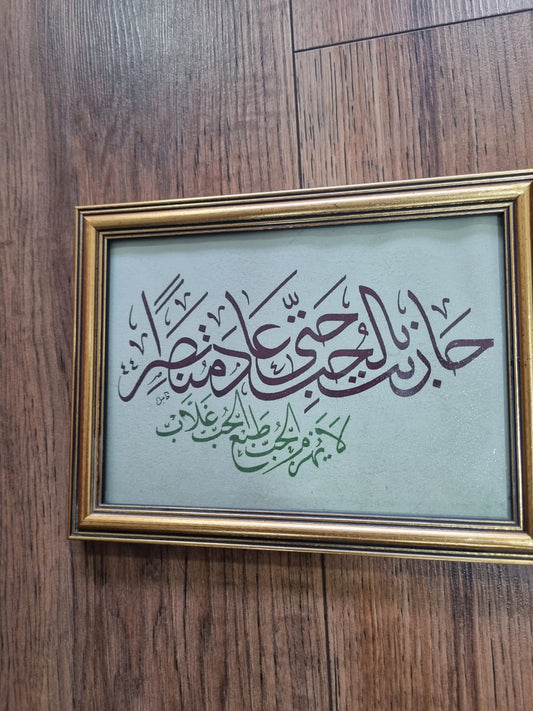 حَارَبْتَ بِالْحُبِّ حَتَّى عَادَ مُنْتَصِرًا
لَا يُهْزَمُ الْحُبُّ طَبْعُ الْحُبِّ غَلَّابُ